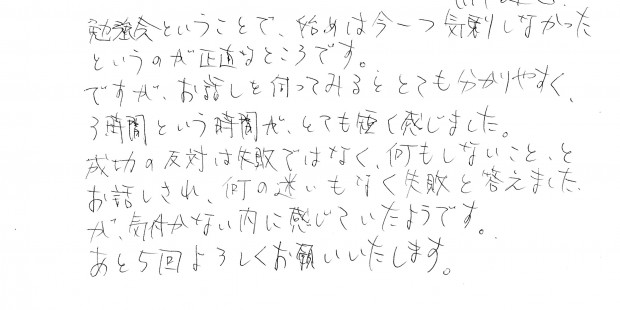 勉強会ということで、始めは今一つ気乗りしなかった
というのが正直なところです。
ですが、お話しを伺ってみるととても分かりやすく、
3時間という時間が、とても短く感じました。
成功の反対は失敗ではなく、何もしないこと、と
お話しされ、何の迷いもなく失敗と答えました
が、気付かない内に感じていたようです。
あと5回よろしくお願いいたします。